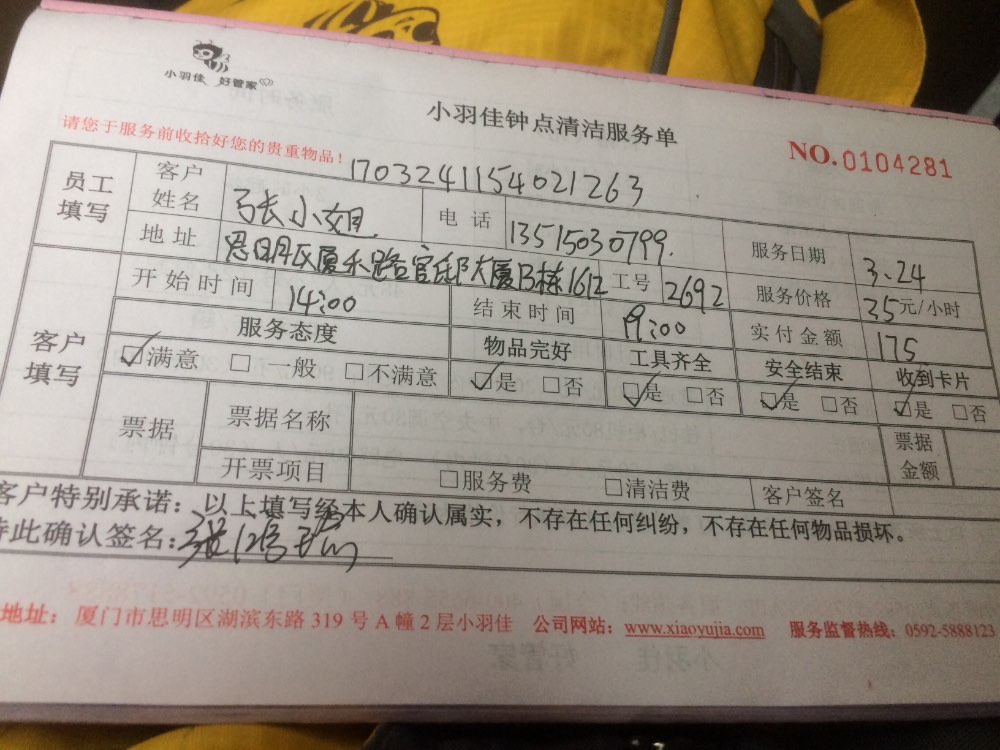 小羽佳 好管家
小羽佳钟点清洁服务单
请您于服务前收拾好您的贵重物品！
NO.0104281
1703241154021263
员工填写 客户姓名 张小姐 电话 13515030799. 服务日期 3.24
地址 思明区厦禾路官邸大厦B栋1612 工号 2692 服务价格 35元/小时
客户填写 开始时间 14:00 结束时间 19:00 实付金额 175
服务态度 物品完好 工具齐全 安全结束 收到卡片
☑满意 □一般 □不满意 ☑是 □否 ☑是 □否 ☑是 □否 ☑是 □否
票据 票据名称 票据金额
开票项目 □服务费 □清洁费 客户签名
客户特别承诺：以上填写经本人确认属实，不存在任何纠纷，不存在任何物品损坏。
特此确认签名：
地址：厦门市思明区湖滨东路 319 号 A 幢 2 层小羽佳 公司网站：www.xiaoyujia.com 服务监督热线：0592-5888123